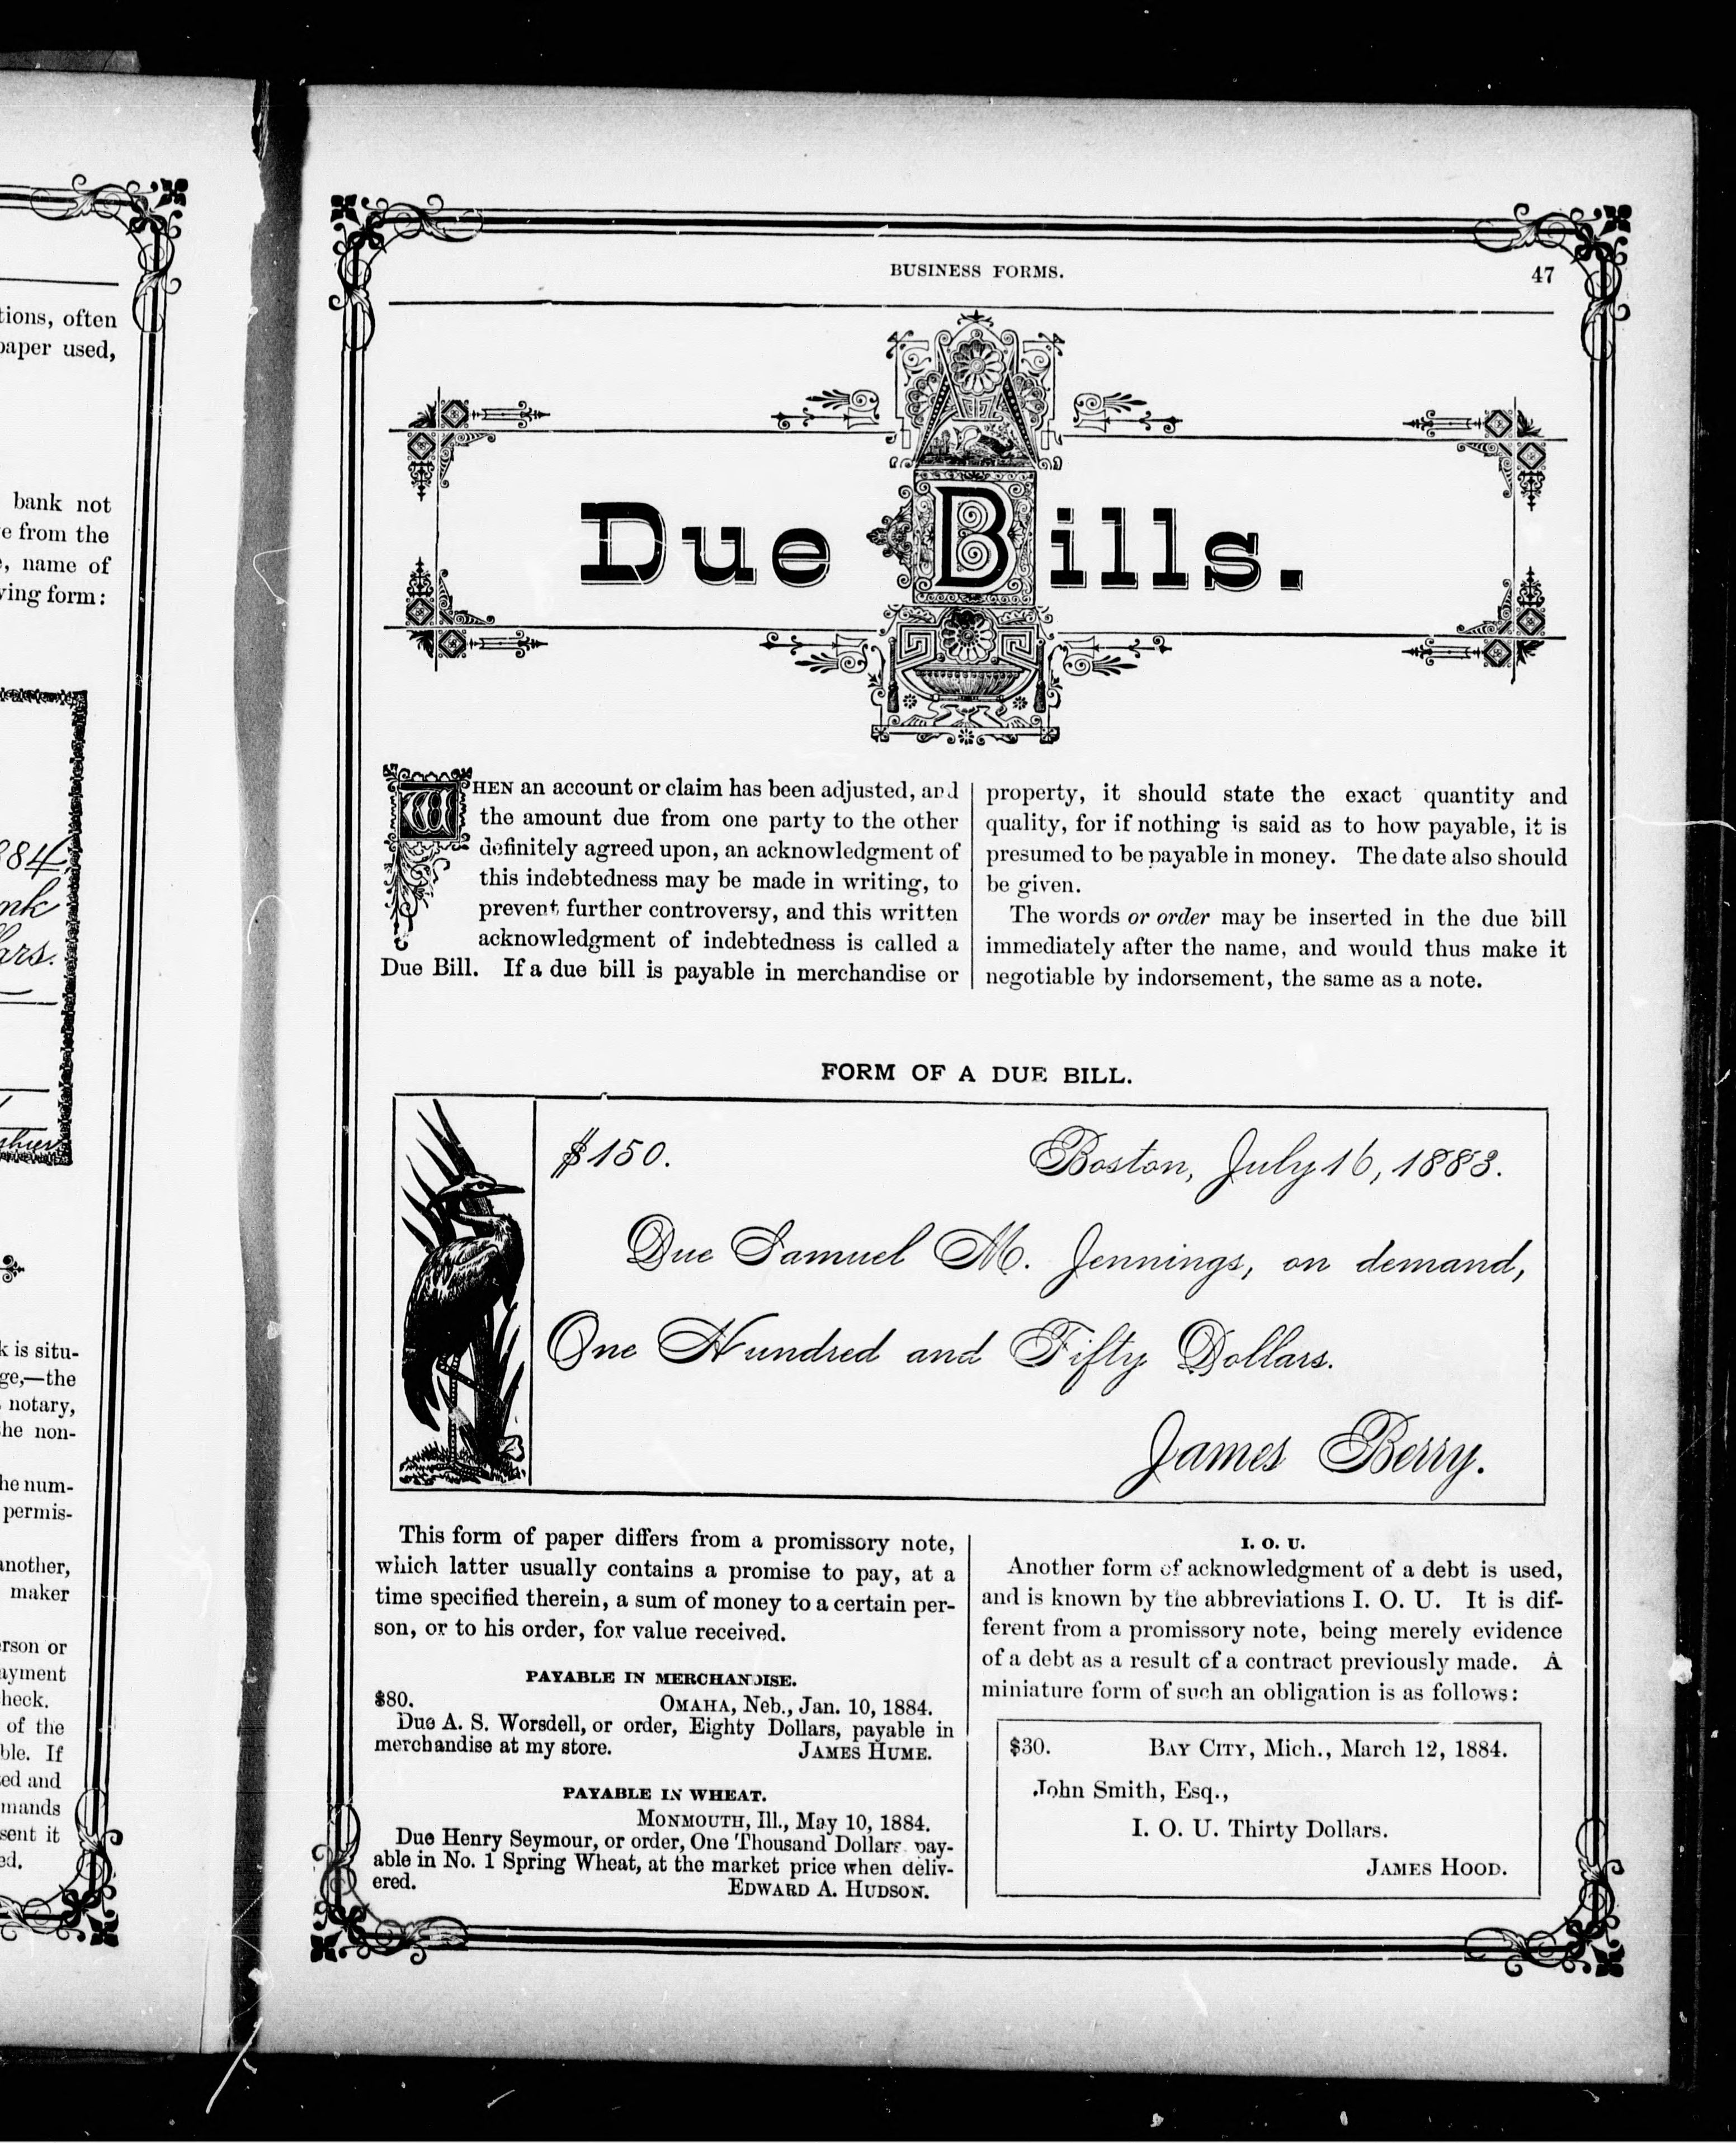 tions, often
paper used,
bank not
e from the
, name of
ving form:
884
nk
ars.
shier
k is situ-
ge,—the
notary,
he non-
he num-
permis-
another,
maker
erson or
ayment
heck.
of the
ble. If
ed and
mands
sent it
ed.
BUSINESS FORMS.
47
Due Bills.
WHEN an account or claim has been adjusted, and
the amount due from one party to the other
definitely agreed upon, an acknowledgment of
this indebtedness may be made in writing, to
prevent further controversy, and this written
acknowledgment of indebtedness is called a
Due Bill. If a due bill is payable in merchandise or
property, it should state the exact quantity and
quality, for if nothing is said as to how payable, it is
presumed to be payable in money. The date also should
be given.
The words or order may be inserted in the due bill
immediately after the name, and would thus make it
negotiable by indorsement, the same as a note.
FORM OF A DUE BILL.
$150. Boston, July 16, 1883.
Due Samuel M. Jennings, on demand,
One Hundred and Fifty Dollars.
James Berry.
This form of paper differs from a promissory note,
which latter usually contains a promise to pay, at a
time specified therein, a sum of money to a certain per-
son, or to his order, for value received.
PAYABLE IN MERCHANDISE.
$80. OMAHA, Neb., Jan. 10, 1884.
Due A. S. Worsdell, or order, Eighty Dollars, payable in
merchandise at my store. JAMES HUME.
PAYABLE IN WHEAT.
MONMOUTH, Ill., May 10, 1884.
Due Henry Seymour, or order, One Thousand Dollars pay-
able in No. 1 Spring Wheat, at the market price when deliv-
ered. EDWARD A. HUDSON.
I. O. U.
Another form of acknowledgment of a debt is used,
and is known by the abbreviations I. O. U. It is dif-
ferent from a promissory note, being merely evidence
of a debt as a result of a contract previously made. A
miniature form of such an obligation is as follows:
$30. BAY CITY, Mich., March 12, 1884.
John Smith, Esq.,
I. O. U. Thirty Dollars.
JAMES HOOD.